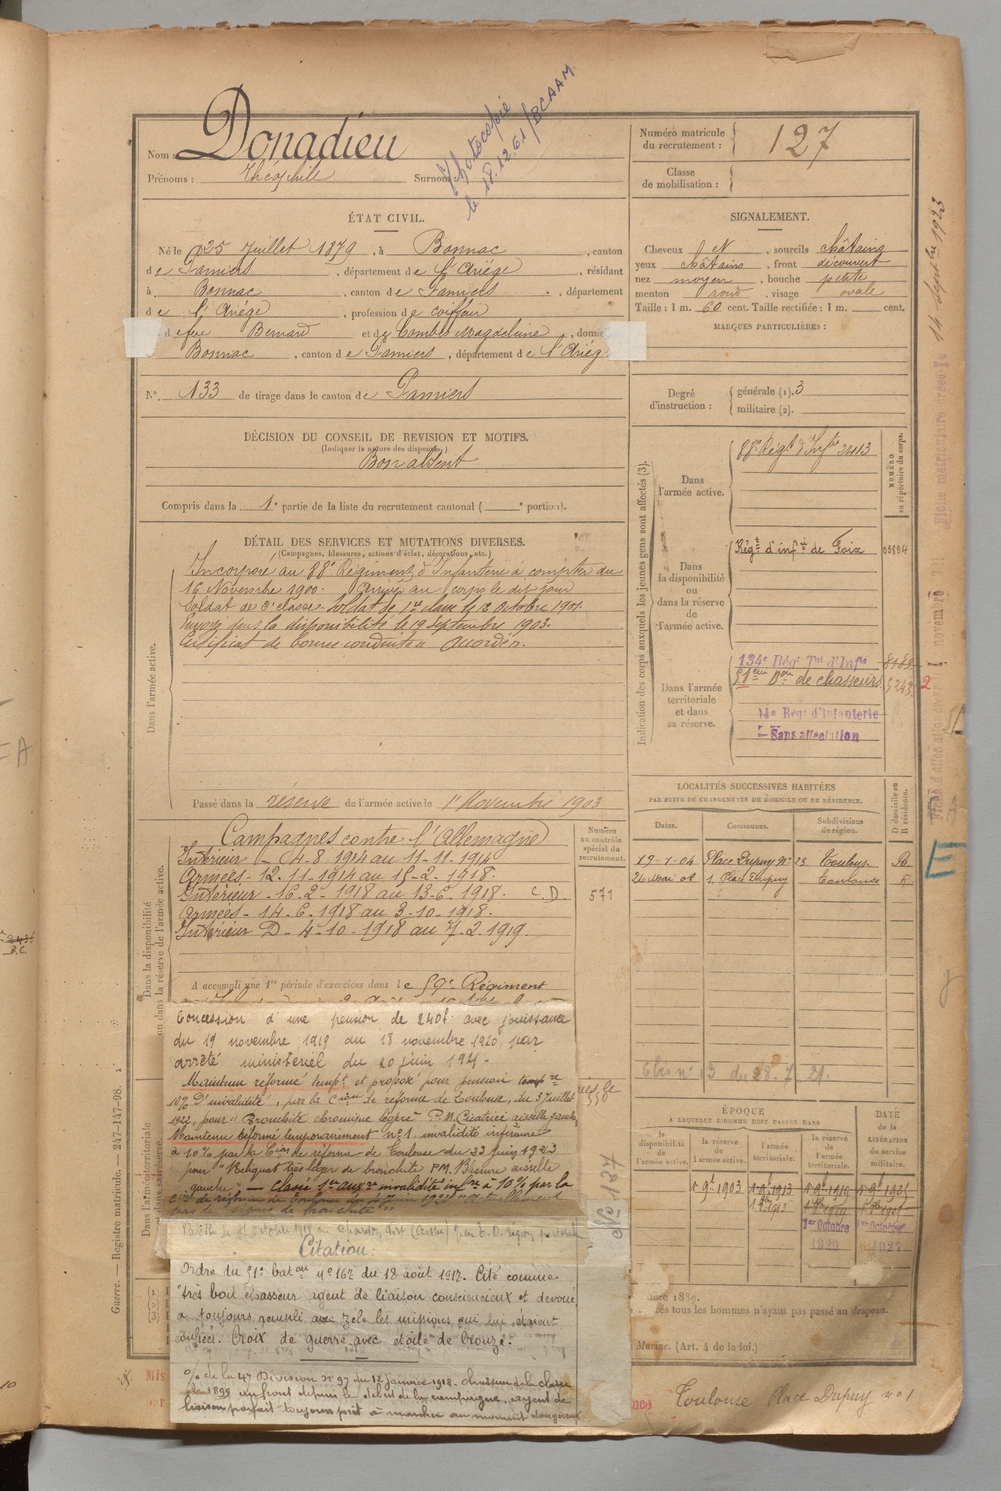 Nom : Donadieu
Prénoms : Théophile Surnom :
Photocopie
le 18.12.61 / BCAAM
Numéro matricule du recrutement : 127
Classe de mobilisation :
ÉTAT CIVIL.
Né le 25 Juillet 1879, à Bonnac, canton
de Pamiers, département de l'Ariège, résidant
à Bonnac, canton de Pamiers, département
de l'Ariège, profession de coiffeur
de feu Bernard et de Combes Magdeleine, domic
Bonnac, canton de Pamiers, département de l'Arièg
N° 133 de tirage dans le canton de Pamiers
SIGNALEMENT.
Cheveux N, sourcils châtains
yeux châtains, front découvert
nez moyen, bouche petite
menton rond, visage ovale
Taille : 1 m. 60 cent. Taille rectifiée : 1 m. cent.
MARQUES PARTICULIÈRES :
Degré d'instruction : générale (1). 3
militaire (2).
DÉCISION DU CONSEIL DE REVISION ET MOTIFS.
(Indiquer la nature des dispenses.)
Bon absent
Compris dans la 1e partie de la liste du recrutement cantonal ( e portion).
DÉTAIL DES SERVICES ET MUTATIONS DIVERSES.
(Campagnes, blessures, actions d'éclat, décorations, etc.)
Dans l'armée active.
Incorporé au 88e Régiment d'Infanterie à compter du
16 Novembre 1900. Arrivé au corps le dit jour
Soldat de 2e classe. Soldat de 1re classe le 12 Octobre 1901.
Envoyé dans la disponibilité le 19 Septembre 1903.
Certificat de bonne conduite accordé.
Passé dans la réserve de l'armée active le 1er Novembre 1903
Dans la disponibilité ou dans la réserve de l'armée active.
Campagnes contre l'Allemagne
Intérieur - 4-8-1914 au 11-11-1914
Armées - 12-11-1914 au 15-2-1918.
Intérieur - 16-2-1918 au 13-6-1918. C.D.
Armées - 14-6-1918 au 3-10-1918.
Intérieur D - 4-10-1918 au 7-2-1919.
Numéro au contrôle spécial du recrutement.
571
A accompli une 1re période d'exercices dans le 59e Régiment
Concession d'une pension de 240f. avec jouissance
du 19 novembre 1919 au 18 novembre 1920 par
arrêté ministériel du 20 juin 1921.
Maintenu réformé tempre et proposé pour pension tempre
10% d'invalidité, par la Cion de réforme de Toulouse, du 5 Juillet
1922, pour "Bronchite chronique légère P.M. Cicatrice aisselle gauche
Maintenu réformé temporairement n°1 invalidité inférieure
à 10% par la Cion de réforme de Toulouse du 23 juin 1923
pour "Reliquat très léger de bronchite P.M. Blessure aisselle
gauche". - Classé 1er aux re invalidité infre à 10% par la
pas de signes de bronchite"
Citation:
Ordre du 51e baton n° 162 du 18 août 1917. Cité comme
très bon chasseur agent de liaison consciencieux et dévoué,
a toujours rempli avec zèle les missions qui lui étaient
confiées. Croix de guerre avec étoile de bronze.
O/ de la 47 Division n° 97 du 12 janvier 1918. chasseur de la classe
de 1899 au front depuis le début de la campagne. agent de
liaison parfait toujours prêt à marcher au moment dangereux
Indication des corps auxquels les jeunes gens sont affectés (3).
NUMÉRO au répertoire du corps.
Dans l'armée active.
88e Régt d'Infie 2413
Dans la disponibilité ou dans la réserve de l'armée active.
Régt d'infie de Foix 03894
Dans l'armée territoriale et dans sa réserve.
134e Régt Tal d'Infie
51eme Bon de chasseurs
14e Régt d'Infanterie
Sans affectation
LOCALITÉS SUCCESSIVES HABITÉES
PAR SUITE DE CHANGEMENTS DE DOMICILE OU DE RÉSIDENCE.
Dates. Communes. Subdivisions de région. D domicile ou R résidence.
17-1-04 Place Dupuy n° 13 Toulouse
26 Mai 08 1, Place Dupuy Toulouse
ÉPOQUE
À LAQUELLE L'HOMME DOIT PASSER DANS
la disponibilité de l'armée active.
la réserve de l'armée active.
l'armée territoriale.
la réserve de l'armée territoriale.
DATE de la LIBÉRATION du service militaire.
1er Octobre
1920
1er Octobre
és tous les hommes n'ayant pas passé au drapeau.
(Art. 4 de la loi.)
Toulouse Place Dupuy n° 1
Guerre. — Registre matricule. — 247-147-98.
Dans l'armée territoriale
E
14 Septbre 1923